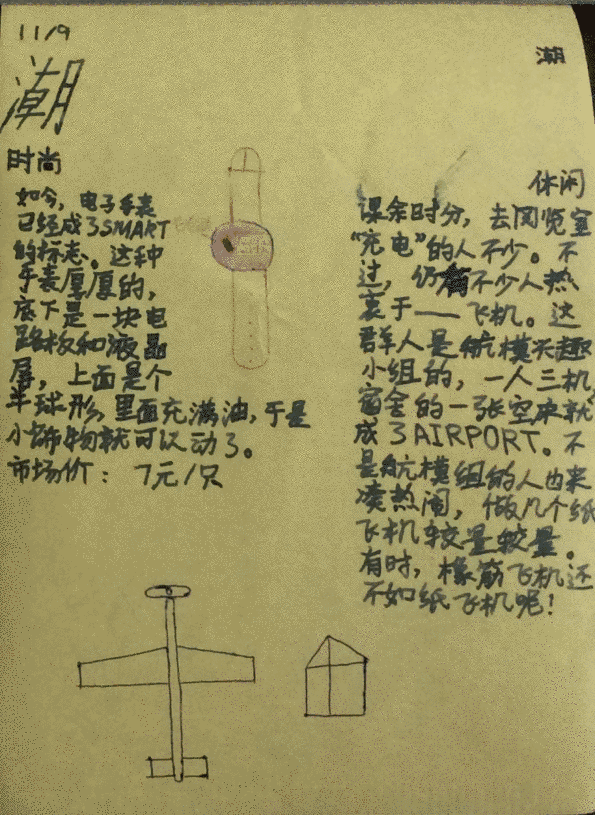 11/9
潮
潮
时尚
如今，电子手表
已经成了SMART
的标志。这种
手表厚厚的，
底下是一块电
路板和液晶
屏，上面是个
半球形，里面充满油，于是
小饰物就可以动了。
市场价：7元/只
休闲
课余时分，去阅览室
“充电”的人不少。不
过，仍有不少人热
衷于——飞机。这
群人是航模兴趣
小组的，一人三机，
宿舍的一张空床就
成了AIRPORT。不
是航模组的人也来
凑热闹，做几个纸
飞机较量较量。
有时，橡筋飞机还
不如纸飞机呢！